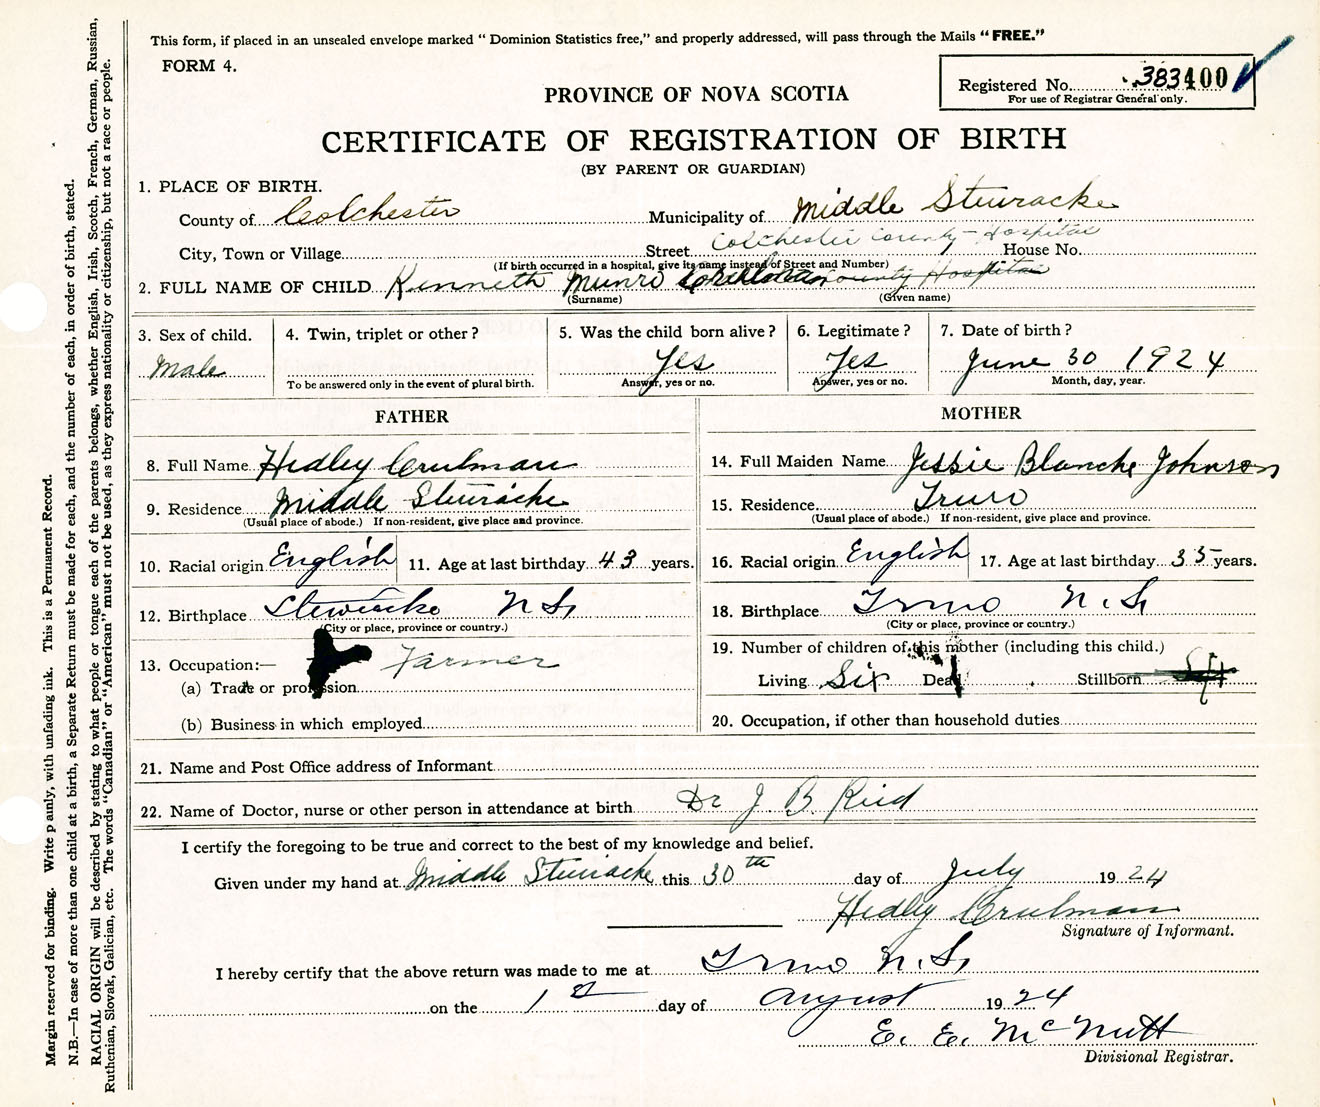 This form, if placed in an unsealed envelope marked " Dominion Statistics free," and properly addressed, will pass through the Mails "FREE."
FORM 4.
Registered No. 383400
For use of Registrar General only.
PROVINCE OF NOVA SCOTIA
CERTIFICATE OF REGISTRATION OF BIRTH
(BY PARENT OR GUARDIAN)
1. PLACE OF BIRTH.
County of Colchester Municipality of Middle Stewiacke
City, Town or Village Street Colchester County Hospital House No.
(If birth occurred in a hospital, give its name instead of Street and Number)
2. FULL NAME OF CHILD Kenneth Munro County Hospital
(Surname) (Given name)
3. Sex of child. 4. Twin, triplet or other? 5. Was the child born alive? 6. Legitimate? 7. Date of birth?
Male Yes Yes June 30 1924
To be answered only in the event of plural birth. Answer, yes or no. Answer, yes or no. Month, day, year.
FATHER MOTHER
8. Full Name Hedley Creelman 14. Full Maiden Name Jessie Blanche Johnson
9. Residence Middle Stewiacke 15. Residence Truro
(Usual place of abode.) If non-resident, give place and province. (Usual place of abode.) If non-resident, give place and province.
10. Racial origin English 11. Age at last birthday 43 years. 16. Racial origin English 17. Age at last birthday 35 years.
12. Birthplace Stewiacke N.S. 18. Birthplace Truro N.S.
(City or place, province or country.) (City or place, province or country.)
13. Occupation:— Farmer 19. Number of children of this mother (including this child.)
(a) Trade or profession Living Six Dead Stillborn
(b) Business in which employed 20. Occupation, if other than household duties
21. Name and Post Office address of Informant
22. Name of Doctor, nurse or other person in attendance at birth Dr J. B. Reid
I certify the foregoing to be true and correct to the best of my knowledge and belief.
Given under my hand at Middle Stewiacke this 30th day of July 1924
Hedley Creelman
Signature of Informant.
I hereby certify that the above return was made to me at Truro N.S.
on the 1st day of August 1924
E. E. McNutt
Divisional Registrar.
Margin reserved for binding. Write p anly, with unfading ink. This is a Permanent Record.
N.B.—In case of more than one child at a birth, a Separate Return must be made for each, and the number of each, in order of birth, stated.
RACIAL ORIGIN will be described by stating to what people or tongue each of the parents belongs, whether English, Irish, Scotch, French, German, Russian,
Ruthenian, Slovak, Galician, etc. The words "Canadian" or "American" must not be used, as they express nationality or citizenship, but not a race or people.